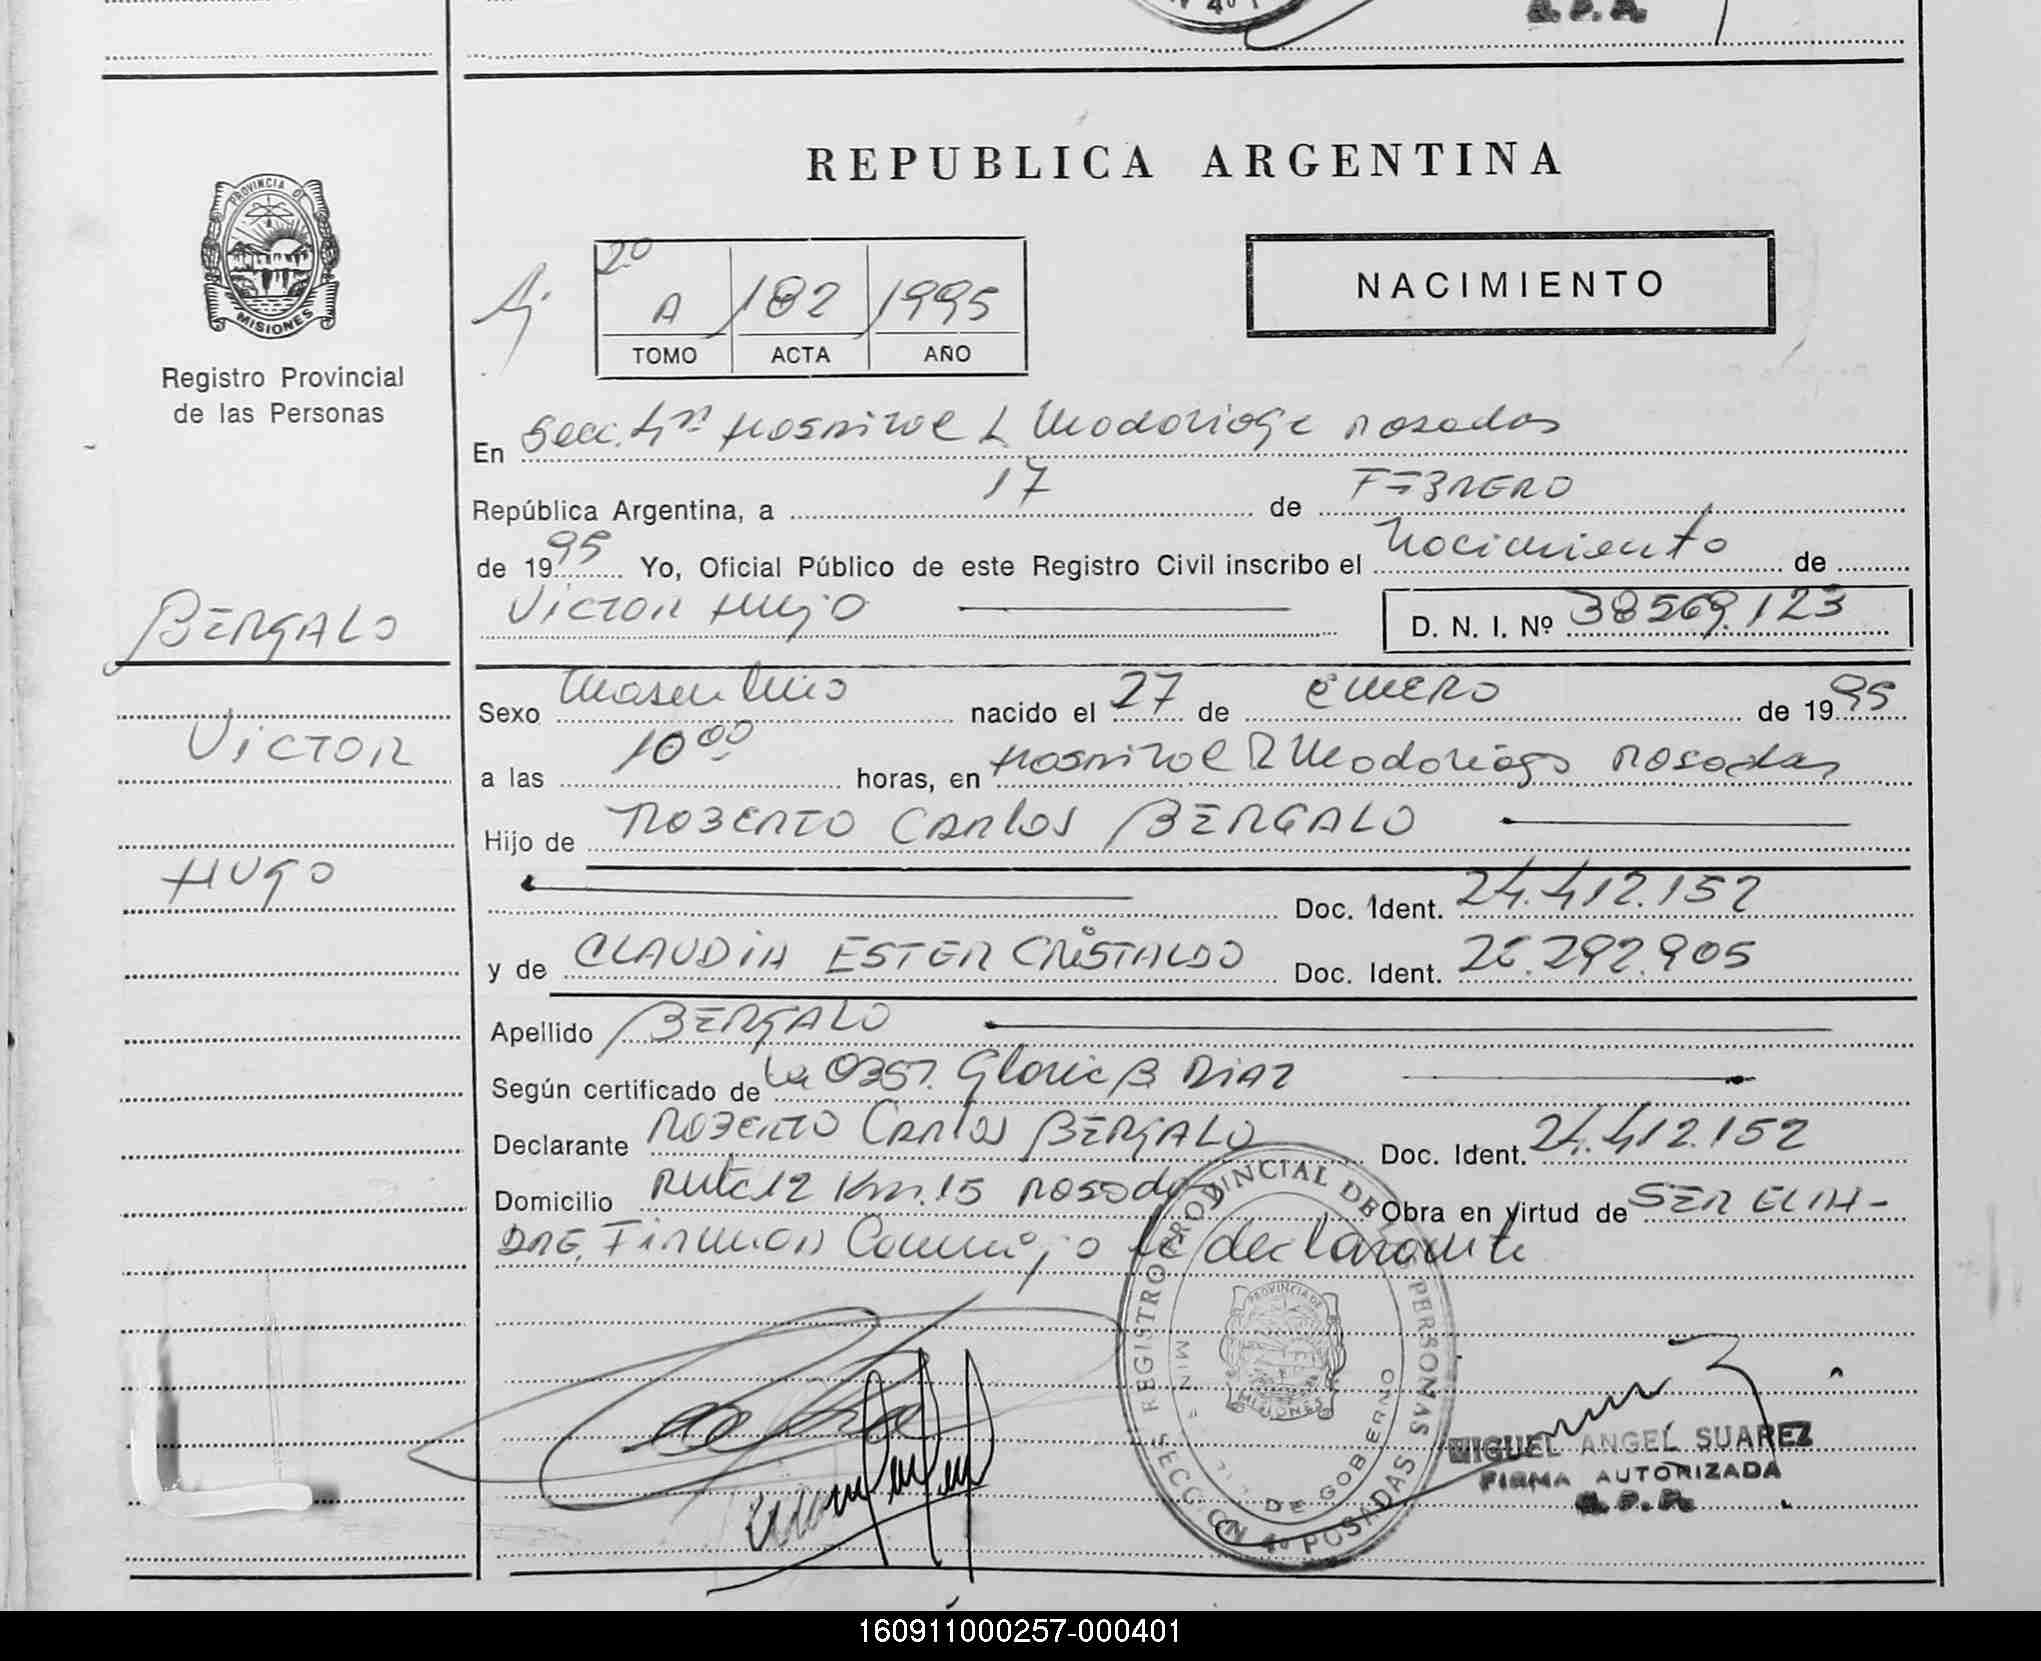 PROVINCIA DE
MISIONES
Registro Provincial
de las Personas
BERGALO
VICTOR
HUGO
REPUBLICA ARGENTINA
2º
A 182 1995
TOMO ACTA AÑO
NACIMIENTO
En Secc. 4ta Hospital R Madariaga Posadas
República Argentina, a 17 de FEBRERO
de 1995 Yo, Oficial Público de este Registro Civil inscribo el Nacimiento de
VICTOR HUGO D. N. I. Nº 38569.123
Sexo Masculino nacido el 27 de ENERO de 1995
a las 10 00 horas, en Hospital R Madariaga Posadas
Hijo de ROBERTO CARLOS BERGALO
Doc. Ident. 24.412.152
y de CLAUDIA ESTER CRISTALDO Doc. Ident. 26.292.905
Apellido BERGALO
Según certificado de La Obst. Gloria B DIAZ
Declarante ROBERTO CARLOS BERGALO Doc. Ident. 24.412.152
Domicilio Ruta 12 Km. 15 Posadas Obra en virtud de SER EL PA-
DRE, Firman Conmigo el declarante
REGISTRO PROVINCIAL DE LAS PERSONAS
SECCION 4º POSADAS
DE GOBERNO
PROVINCIA DE
MISIONES
MIGUEL ANGEL SUAREZ
FIRMA AUTORIZADA
R. P. P.
160911000257-000401